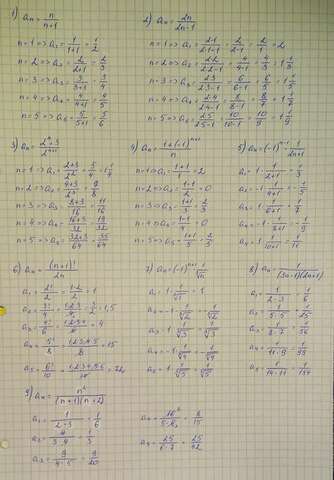 1) aₙ = n/(n+1)
n=1 => a₁ = 1/(1+1) = 1/2
n=2 => a₂ = 2/(2+1) = 2/3
n=3 => a₃ = 3/(3+1) = 3/4
n=4 => a₄ = 4/(4+1) = 4/5
n=5 => a₅ = 5/(5+1) = 5/6
2) aₙ = 2n/(2n-1)
n=1 => a₁ = 2·1/(2·1-1) = 2/(2-1) = 2/1 = 2
n=2 => a₂ = 2·2/(2·2-1) = 4/(4-1) = 4/3 = 1 1/3
n=3 => a₃ = 2·3/(2·3-1) = 6/(6-1) = 6/5 = 1 1/5
n=4 => a₄ = 2·4/(2·4-1) = 8/(8-1) = 8/7 = 1 1/7
n=5 => a₅ = 2·5/(2·5-1) = 10/(10-1) = 10/9 = 1 1/9
3) aₙ = (2ⁿ+3)/2ⁿ⁺¹
n=1 => a₁ = (2+3)/2² = 5/4 = 1 1/4
n=2 => a₂ = (4+3)/2³ = 7/8
n=3 => a₃ = (8+3)/16 = 11/16
n=4 => a₄ = (16+3)/32 = 19/32
n=5 => a₅ = (32+3)/64 = 35/64
4) aₙ = (1+(-1)ⁿ⁺¹)/n
n=1 => a₁ = (1+1)/1 = 2
n=2 => a₂ = (1-1)/2 = 0
n=3 => a₃ = (1+1)/3 = 2/3
n=4 => a₄ = (1-1)/4 = 0
n=5 => a₅ = (1+1)/5 = 2/5
5) aₙ = (-1)ⁿ⁺¹ · 1/(2n+1)
a₁ = 1· 1/(2+1) = 1/3
a₂ = -1· 1/(4+1) = -1/5
a₃ = 1· 1/(6+1) = 1/7
a₄ = -1· 1/(8+1) = -1/9
a₅ = 1· 1/(10+1) = 1/11
6) aₙ = (n+1)!/2n
a₁ = 2!/2 = 1·2/2 = 1
a₂ = 3!/4 = 1·2·3/4 = 3/2 = 1,5
a₃ = 4!/6 = 1·2·3·4/6 = 4
a₄ = 5!/8 = 1·2·3·4·5/8 = 15
a₅ = 6!/10 = 1·2·3·4·5·6/10 = 72
7) aₙ = (-1)ⁿ⁺¹ 1/√n
a₁ = 1· 1/√1 = 1
a₂ = -1· 1/√2 = -1/√2
a₃ = 1· 1/√3 = 1/√3
a₄ = -1· 1/√4 = -1/√4
a₅ = 1· 1/√5 = 1/√5
8) aₙ = 1/((3n-1)(2n+1))
a₁ = 1/(2·3) = 1/6
a₂ = 1/(5·5) = 1/25
a₃ = 1/(8·7) = 1/56
a₄ = 1/(11·9) = 1/99
a₅ = 1/(14·11) = 1/154
9) aₙ = n²/((n+1)(n+2))
a₁ = 1/(2·3) = 1/6
a₂ = 4/(3·4) = 1/3
a₃ = 9/(4·5) = 9/20
a₄ = 16/(5·6) = 8/15
a₅ = 25/(6·7) = 25/42